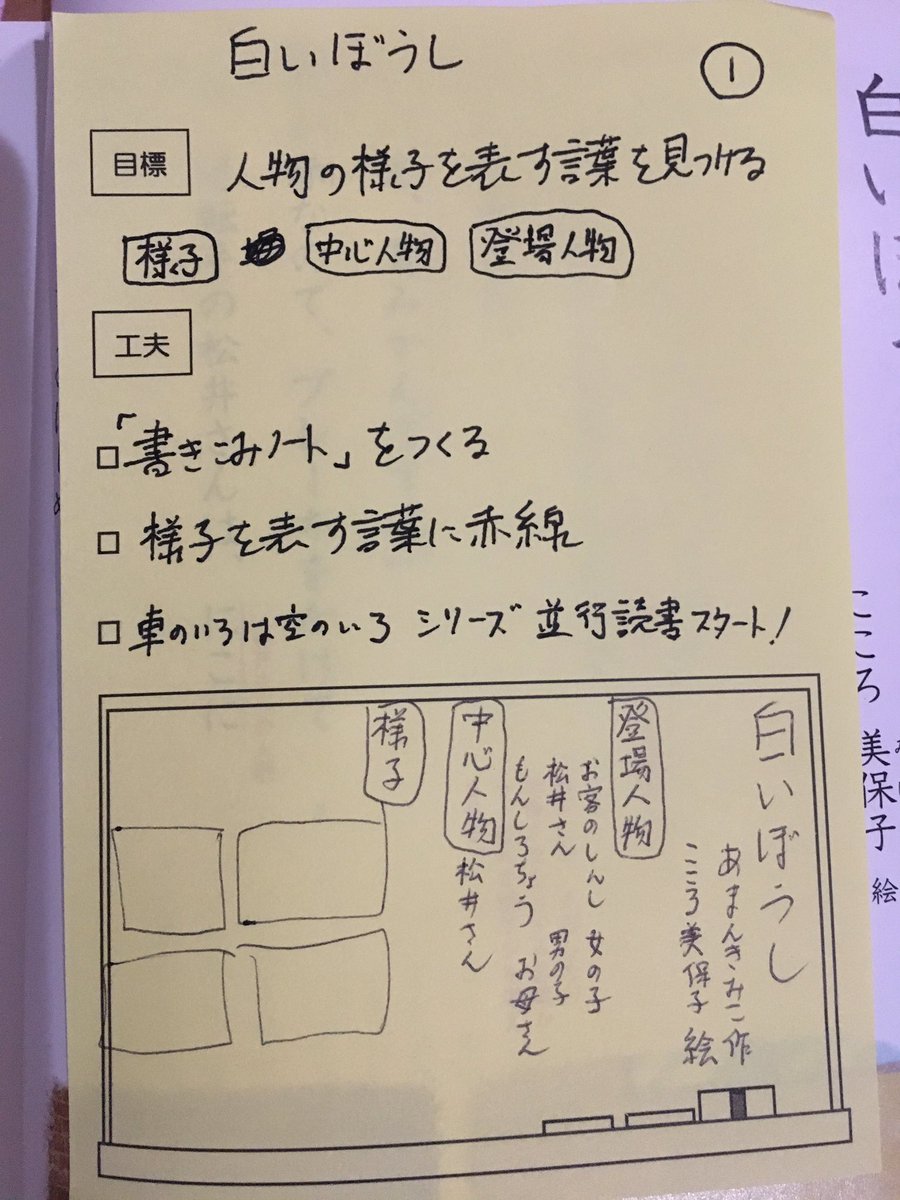 白いぼうし
①
目標
人物の様子を表す言葉を見つける
様子 中心人物 登場人物
工夫
□「書きこみノート」をつくる
□ 様子を表す言葉に赤線
□ 車のいろは空のいろ シリーズ 並行読書スタート!
白いぼうし
あまんきみこ作
こころ美保子 絵
登場人物
お客のしんし 女の子
松井さん 男の子
もんしろちょう お母さん
中心人物 松井さん
様子
白いぼ
こころ 美保子 絵